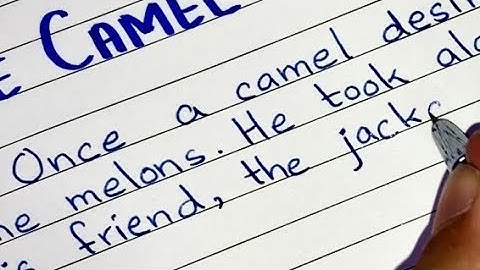 E CAMEL
Once a camel desi
he melons. He took alo
is friend, the jacka